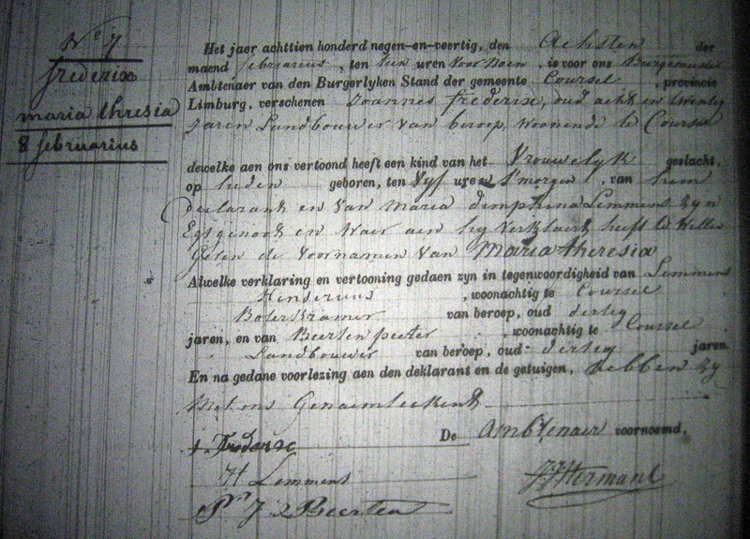 No 7
frederix
maria thresia
8 februarius
Het jaer achttien honderd negen-en-veertig, den Achsten der
maend februarius, ten tien uren Voor Noen, is voor ons Burgemeester
Ambtenaer van den Burgerlyken Stand der gemeente Coursel, provincie
Limburg, verschenen Joannes frederix, oud acht en twintig
Jaren Landbouwer van beroep, woonende te Coursel
dewelke aen ons vertoond heeft een kind van het Vrouwelyk geslacht,
op heden geboren, ten Vyf ure s'morgens, van hem
declarant en van Maria dimphina Lemmens zyn
Egtgenoot en Waer aen hy Verklaert heeft te Willen
Geven de Voornamen van Maria theresia
Alwelke verklaring en vertooning gedaen zyn in tegenwoordigheid van Lemmens
Henderikus, woonachtig te Coursel
Boterkramer van beroep, oud dertig
jaren, en van Beerten peeter, woonachtig te Coursel
Landbouwer van beroep, oud dertig jaren.
En na gedane voorlezing aen den deklarant en de getuigen, hebben zy
Met ons Genaemteekent
J. Frederix De Ambtenaer voornoemd,
H Lemmens
J Hermans
P J Beerten